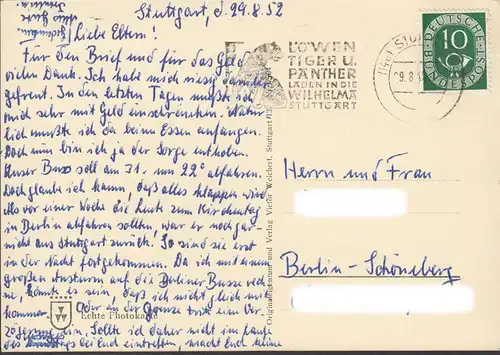 Stuttgart, d. 29.8.52
Liebe Eltern!
Für den Brief und für das Geld
vielen Dank. Ich habe mich riesig darüber
gefreut. In den letzten Tagen mußte ich
mich sehr mit Geld einschränken. Natür
lich mußte ich da beim Essen anfangen.
Doch nun bin ich ja der Sorge enthoben.
Unser Bus soll am 31. um 22° abfahren.
Doch glaube ich kaum, daß alles klappen wird.
Als vor einer Woche die Leute zum Kirchentag
in Berlin abfahren sollten, war er noch gar-
nicht aus Stuttgart zurück. So sind sie erst
in der Nacht fortgekommen. Da ich mit einem
großen Ansturm auf die Berliner Busse rech
ne, könnte es sein, daß ich nicht gleich mit
komme. Oder in der Grenze tritt eine Ver
zögerung ein. Sollte ich daher nicht im Laufe
des bei Euch eintreffen, macht Euch keine
Echte Photokarte
Originalaufnahme und Verlag Viktor Weichert, Stuttgart
LÖWEN
TIGER U.
PANTHER
LADEN IN DIE
WILHELMA
STUTTGART
DEUTSCHE
BUNDESPOST
10
Herrn und Frau
Berlin-Schöneberg